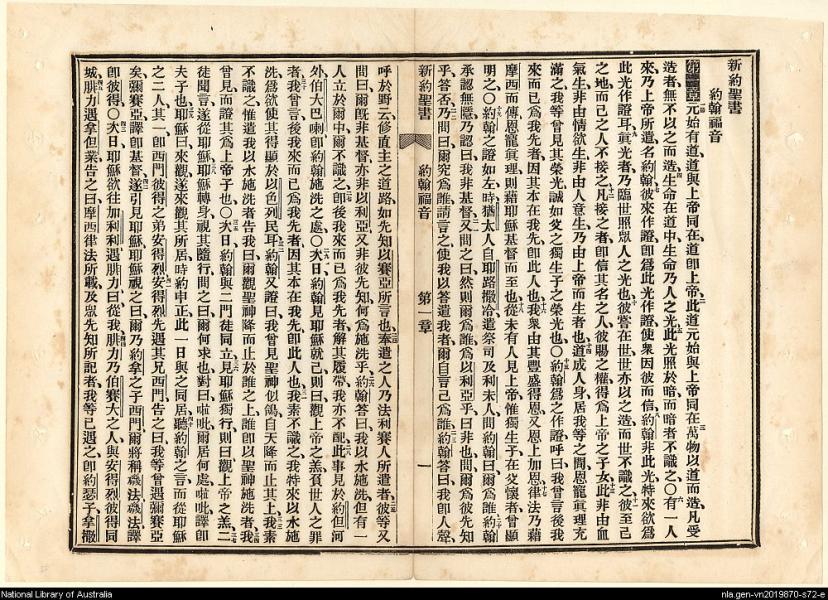 新約聖書
約翰福音
元始有道道與上帝同在道即上帝此道元始與上帝同在萬物以道而造凡受
造者無不以之而造生命在道中生命乃人之光此光照於暗而暗者不識之○有一人
來乃上帝所遣名約翰彼來作證即爲此光作證使衆因彼而信約翰非此光特來欲爲
此光作證耳眞光者乃臨世照衆人之光也彼嘗在世世亦以之造而世不識之彼至己
之地而己之人不接之凡接之者即信其名之人彼賜之權得爲上帝之子女此非由血
氣生非由情欲生非由人意生乃由上帝而生者也道成人身居我等之間恩寵眞理充
滿之我等曾見其榮光誠如父之獨生子之榮光也○約翰爲之作證呼曰我曾言後我
來而已爲我先者因其本在我先即此人也我衆由其豐盛得恩又恩上加恩律法乃藉
摩西而傳恩寵眞理則藉耶穌基督而至也從未有人見上帝惟獨生子在父懷者曾顯
明之○約翰之證如左時猶太人自耶路撒冷遣祭司及利未人問約翰曰爾爲誰約翰
承認無隱乃認曰我非基督又問之曰然則爾爲誰爲以利亞乎曰非也問曰爾彼先知
乎答曰否乃問曰爾究爲誰請言之使我以答遣我者爾自言己爲誰約翰答曰我即人聲
新約聖書 約翰福音 第一章 一
呼於野云修直主之道路如先知以賽亞所言也奉遣之人乃法利賽人所遣者彼等又
問曰爾既非基督亦非以利亞又非彼先知何爲施洗乎約翰答曰我以水施洗但有一
人立於爾中爾不識之即後我來而已爲我先者解其履帶我亦不配此事見於約但河
外伯大巴喇即約翰施洗之處○次日約翰見耶穌就己則曰觀上帝之羔負世人之罪
者我曾言後我來而已爲我先者因其本在我先即此人也我素不識之我特來以水施
洗爲欲使其得顯於以色列民耳約翰又證曰我曾見聖神似鴿自天降而止其上我素
不識之惟遣我以水施洗者告我曰爾觀聖神降而止於誰之上誰即以聖神施洗者我
曾見而證其爲上帝子也○次日約翰與二門徒同立見耶穌獨行則曰觀上帝之羔二
徒聞言遂從耶穌耶穌轉身視其隨行問之曰爾何求也對曰啦吡爾居何處啦吡譯即
夫子也耶穌曰來觀遂來觀其所居時約申正此一日與之同居聽約翰之言而從耶穌
之二人其一即西門彼得之弟安得烈安得烈先遇其兄西門告之曰我等曾遇彌賽亞
矣彌賽亞譯即基督遂引見耶穌耶穌視之曰爾乃約拿之子西門爾將稱磯法磯法譯
即彼得○次日耶穌欲往加利利遇腓力曰從我腓力乃伯賽大之人與安得烈彼得同
城腓力遇拿但業告之曰摩西律法所載及衆先知所記者我等已遇之即約瑟子拿撒
National Library of Australia
nla.gen-vn2019870-s72-e